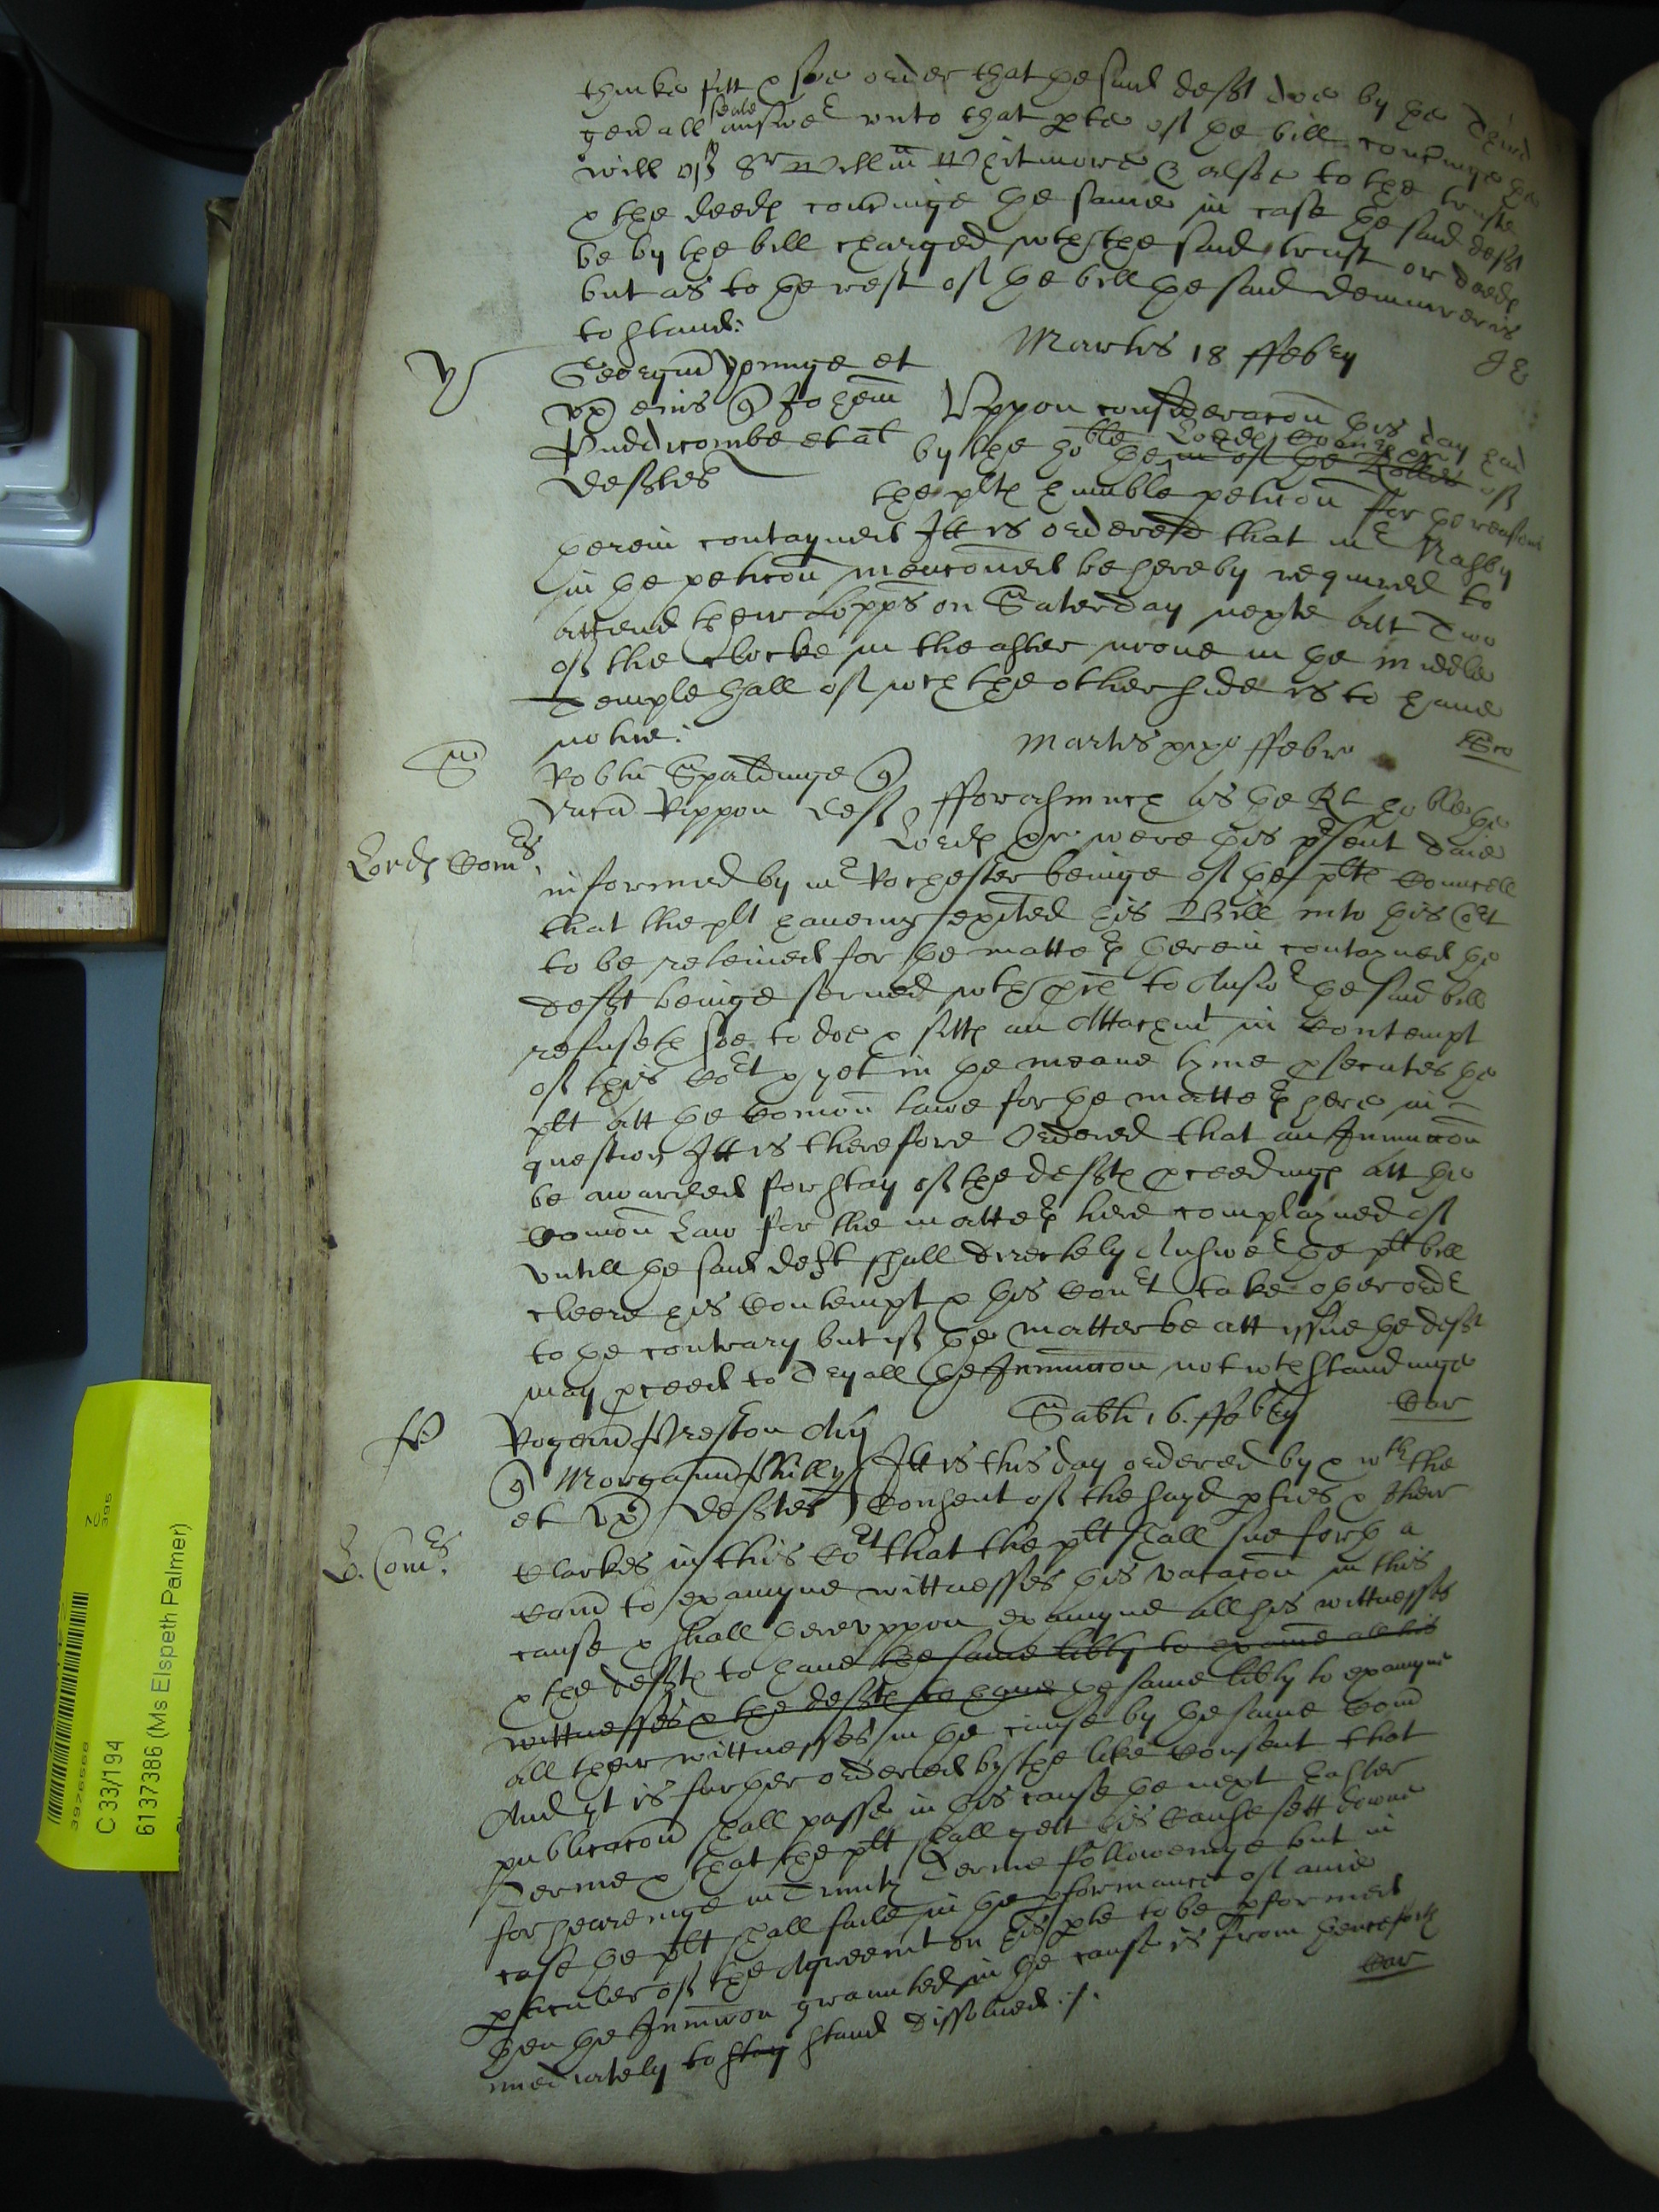 thinke fitt & soe order that the said deft doe by the third
seale
gen'all answer unto that p'te of the bill concerninge the
will of Sr Willm Whitmore & alsoe to the truste
& the deeds concerninge the same in case the said deft
be by the bill charged wth the said trust or deeds
but as to the rest of the bill the said demurrer is
to stand:
Martis 18 ffebry
Y
Georgiu Younge et
ux eius q Johem
Puddicombe et al
deftes
Uppon consideracon this day had
by the hoble Lords Comrs of
the mr of the Rolles
the plts humble peticon for the reasons
therein contayned Itt is ordered that mr Nashby
in the peticon mencioned be hereby required to
attend their Lopps on Saterday nexte att Two
of the Clocke in the after noone in the middle
Temple hall of wch the other side is to have
notice:
Martis xixo ffebr
S
Robtu Spaldinge q
Rippon deft
Lords Comrs
fforasmuch as the Rt hoble the
Lords were this p'sent daie
informed by mr Rochester beinge of the plts Councell
that the plt haveing exhited his Bill into this Cort
to be releived for the matters therein contayned the
deft beinge served wth p'ces to Answr the said bill
refuseth soe to doe & sitts an Attachmt in Contempt
of this Cort & yet in the meane tyme p'secutes the
plt att the Comon Lawe for the matters here in
question Itt is therefore Ordered that an Iniunccon
be awarded for stay of the defts p'ceedings att the
Comon Law for the matters here complayned of
untill the said deft shall directely Answer the plts bill
cleere his Contempt & this Court take other ordr
to the contrary but if the matter be att issue the deft
may p'ceed to Tryall the Iniunccon notwthstandinge
Sabti 16. ffebry
P
Rogerum Preston Ar
q Morganum Phillips
et ux deftes
Lo. Comrs.
Itt is this day ordered by & wth the
Consent of the sayd p'ties & their
Clarkes in this Cort that the plt shall sue forth a
Com to examyne wittnesses this vacacon in this
cause & shall thereuppon examyne all his wittnesses
& the defts to have the same libty to examine all his
wittnesses & the defts to have the same libty to examyne
all their wittnesses in the cause by the same Com
And yt is further ordered by the like Consent that
publicacon shall passe in this cause the next Easter
Terme & that the plt shall gett his Cause sett downe
for heareinge in Trinity Terme followeinge but in
case the plt shall faile in the p'formance of anie
p'ticuler of the Agreemt on his p'te to be p'formed
then the Iniunccon graunted in the cause is from thenceforth
imediately to stay stand dissolved ./.
C 33/194
6137386 (Ms Elspeth Palmer)